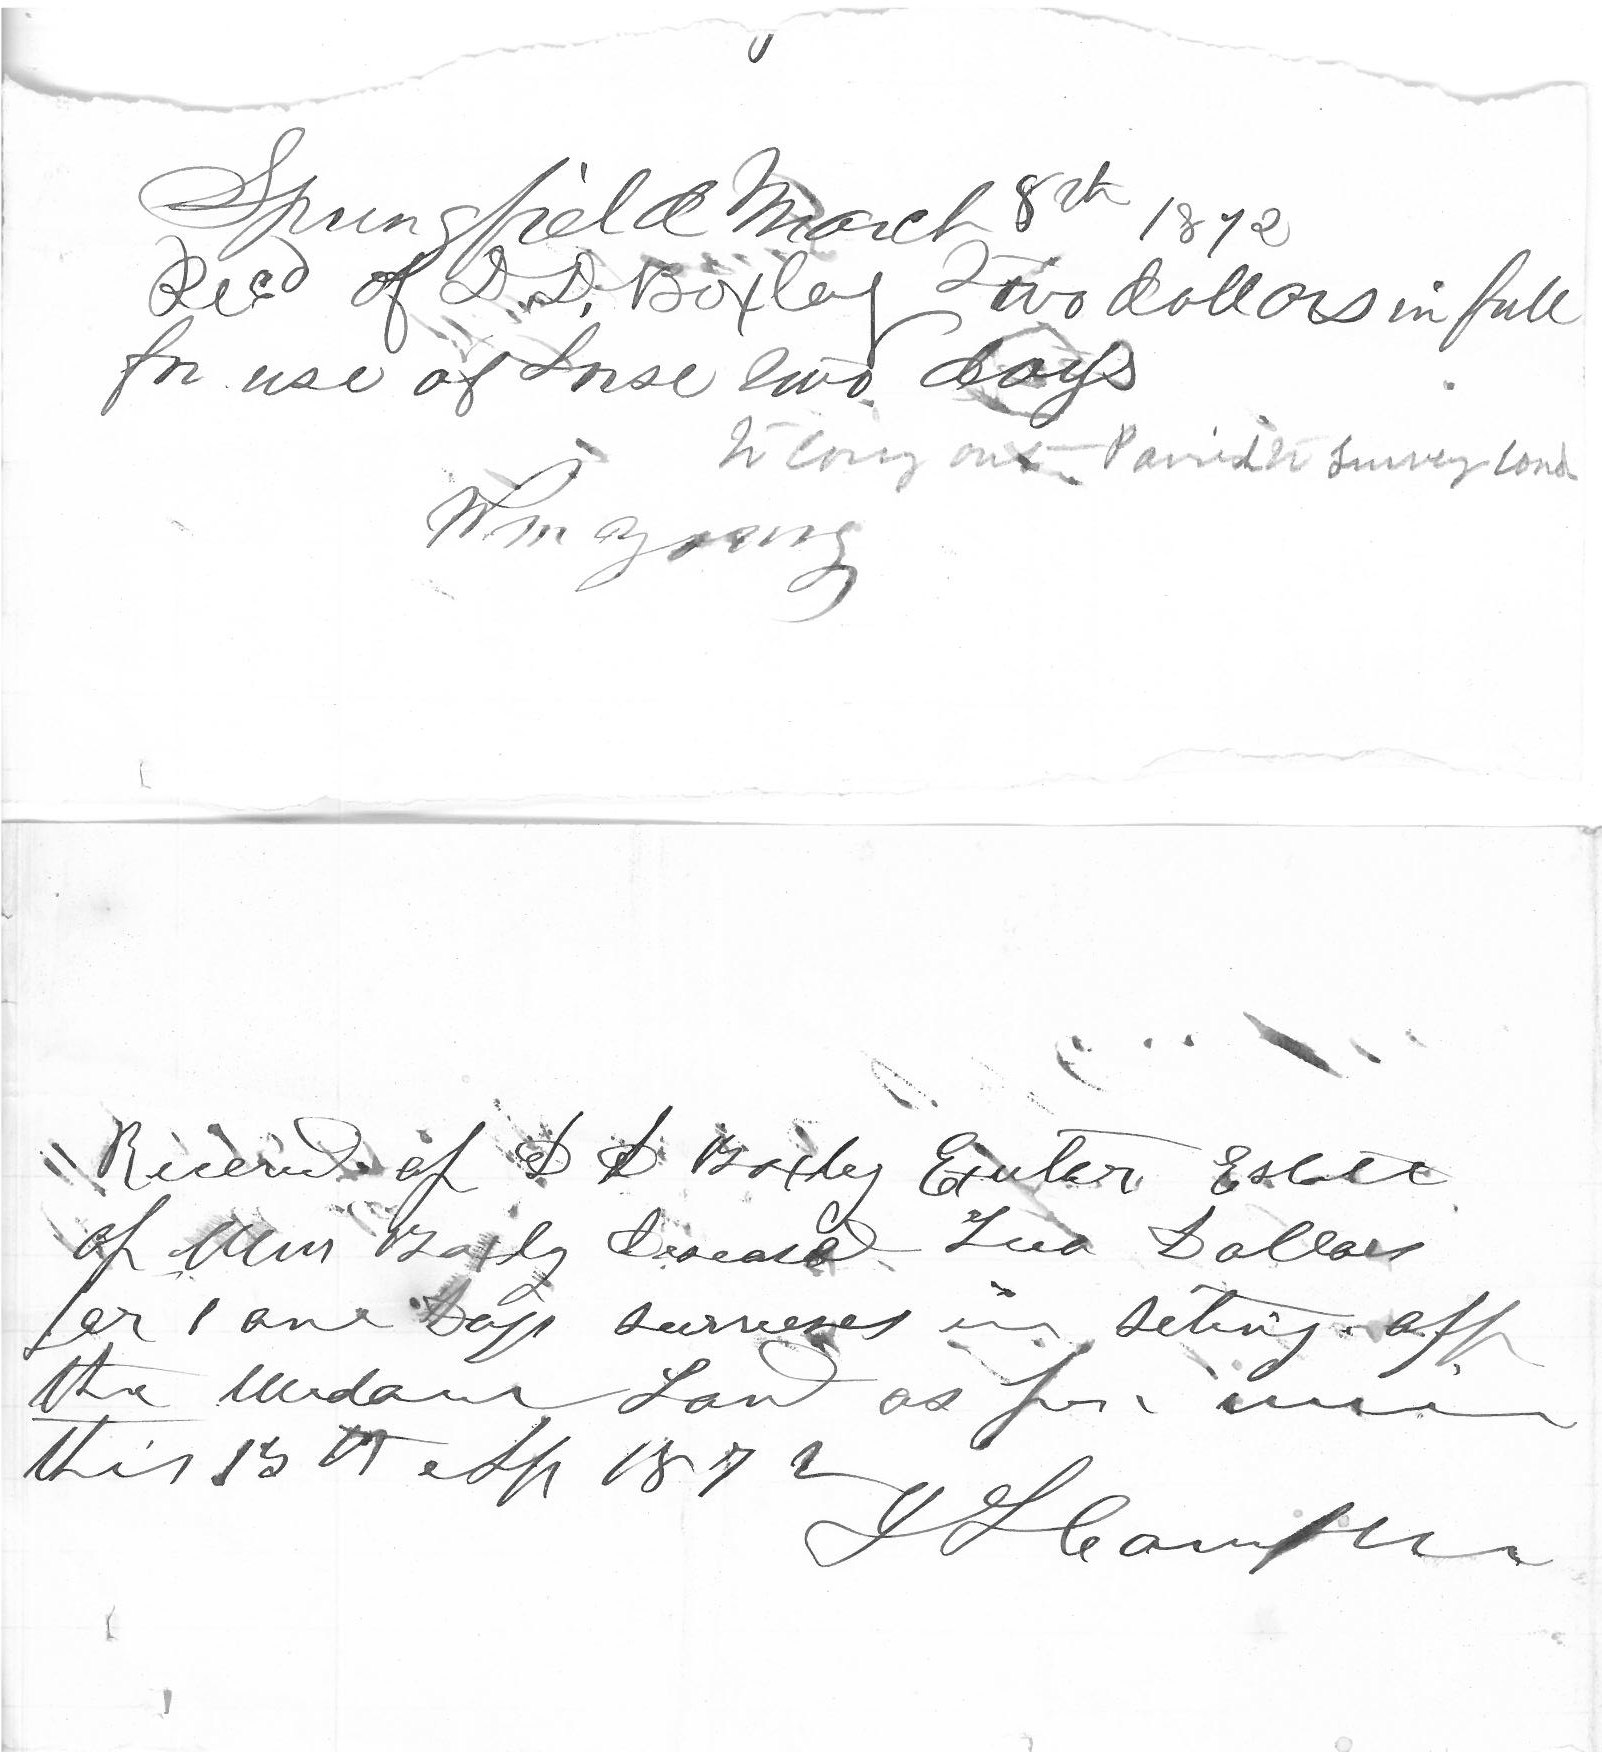 Springfield March 8th 1872
Recd of D. D. Boxley Two dollars in full
for use of horse two days
to cary out Parrish to Survey Land
Wm a young
Received of D D Boxley Exutor Estate
of Wm Boxly Deceasd Two Dollars
for 1 one Days surveses in seting off
the Land as per
this 13th Ap 1872